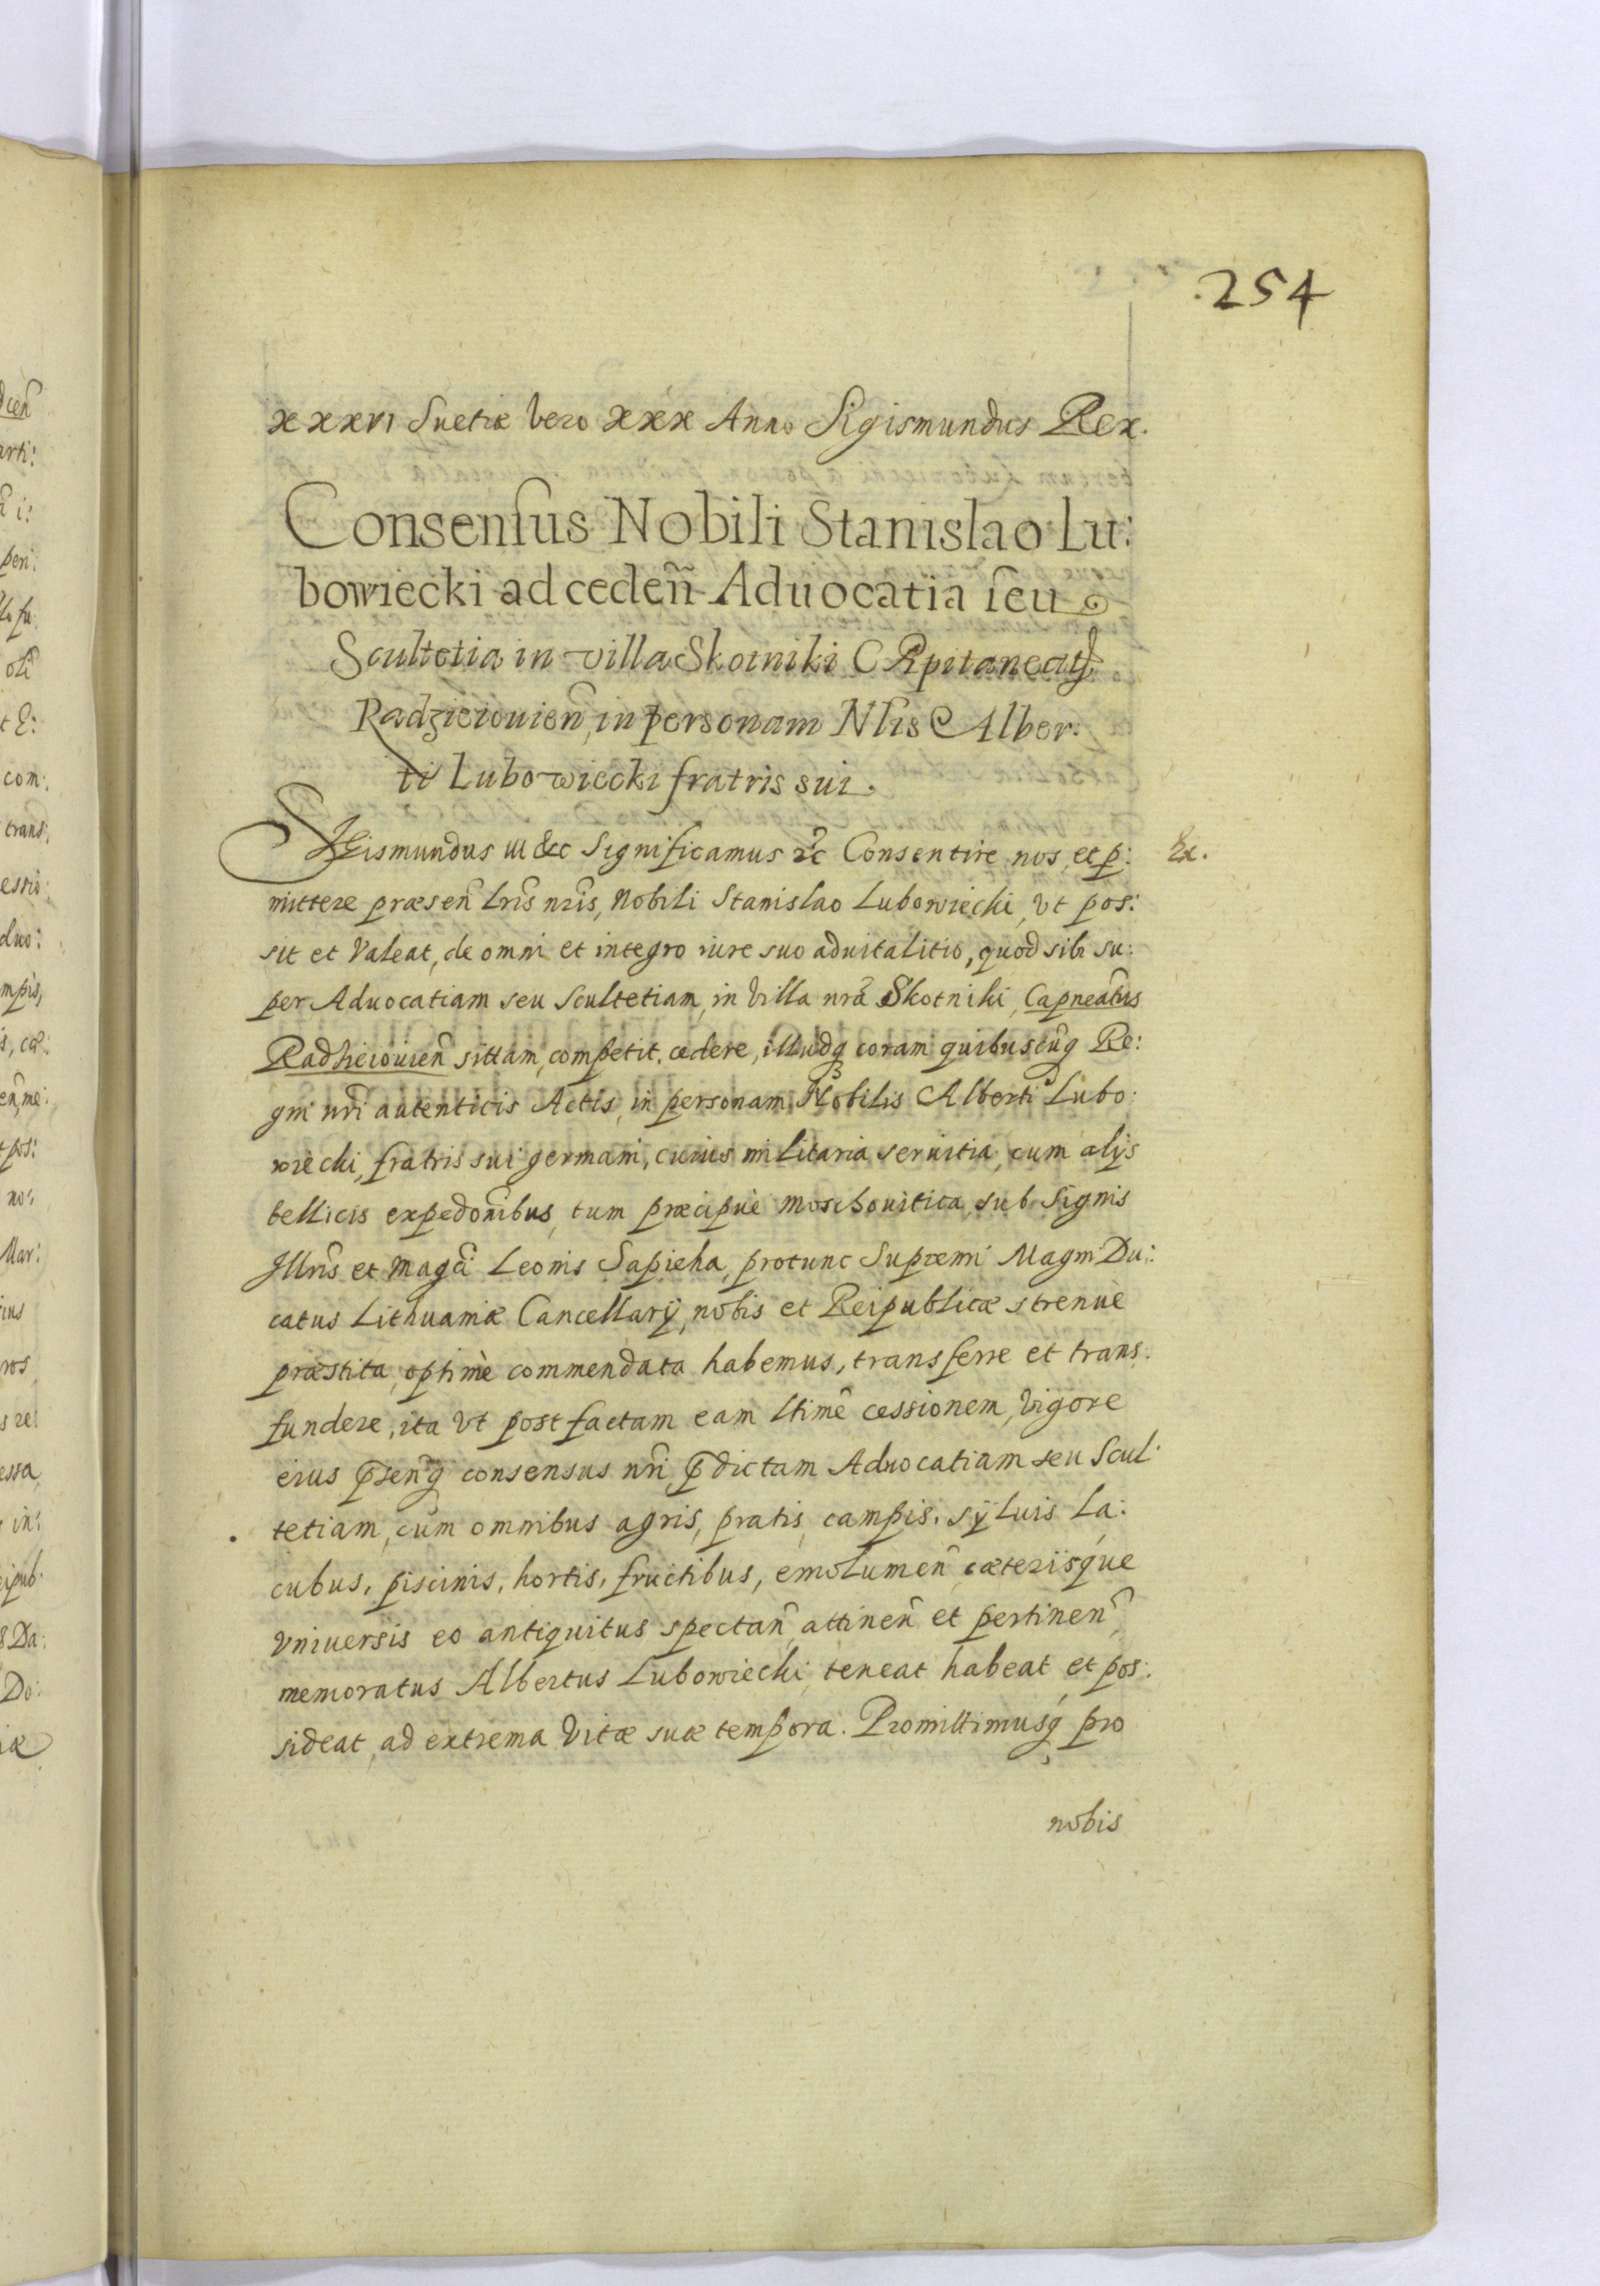 .254
xxxvi Suetiæ vero xxx Anno Sigismundus Rex.
Consensus Nobili Stanislao Lu:
bowiecki ad ceden̄ Aduocatia seu
Scultetia in villa Skotniki Capitaneatꝰ
Radzieiouien̄, in personam Nlis Alber:
ti Lubowiecki fratris sui.
Sigismundus III &c Significamus &c Consentire nos, et p: Ex.
mittere præsen̄ Lris nris, Nobili Stanislao Lubowiecki, vt pos:
sit et valeat, de omni et integro iure suo aduitalitio, quod sibi su:
per Aduocatiam seu Scultetiam, in villa nrā Skotniki, Capneatus
Radzieiouien̄ sittam, competit, cedere, illudq coram quibuscūq Re:
gni nri autenticis Actis, in personam Nobilis Alberti Lubo:
wiecki, fratris sui germani, cuius militaria seruitia, cum alijs
bellicis expedonibus, tum præcipuè Moschouitica, sub signis
Illris et Magci Leonis Sapieha, protunc Supremi Magni Du:
catus Lithuaniæ Cancellarij, nobis et Reipublicæ strenuè
præstita, optimè commendata habemus, transferre et trans:
fundere, ita vt post factam eam ltimè cessionem, vigore
eius p̄senq consensus nri, p̄dictam Aduocatiam seu Scul:
tetiam, cum omnibus agris, pratis, campis, syluis La:
cubus, piscinis, hortis, fructibus, emolumen̄ cæterisque
vniuersis eo antiquitus spectan̄, attinen̄ et pertinen̄,
memoratus Albertus Lubowiecki, teneat habeat et pos:
sideat, ad extrema vitæ suæ tempora. Promittimusq pro
nobis